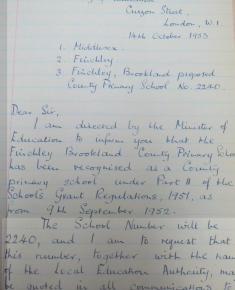 Curzon Street,
London, W.1.
14th October 1953
1. Middlesex.
2. Finchley
3. Finchley, Brookland proposed
County Primary School No. 2240.
Dear Sir,
I am directed by the Minister of
Education to inform you that the
Finchley Brookland County Primary School
has been recognised as a County
primary school under Part II of the
Schools Grant Regulations, 1951, as
from 9th September 1952.
The School Number will be
2240, and I am to request that
this number, together with the name
of the Local Education Authority, may
be quoted in all communications to